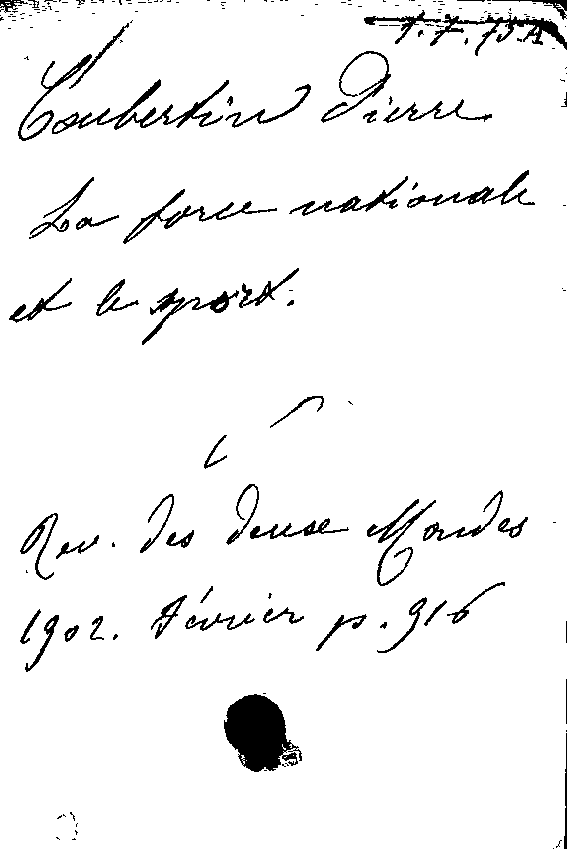 Coubertin Pierre
La force nationale
et le sport.
Rev. des deux Mondes
1902. Février p. 916